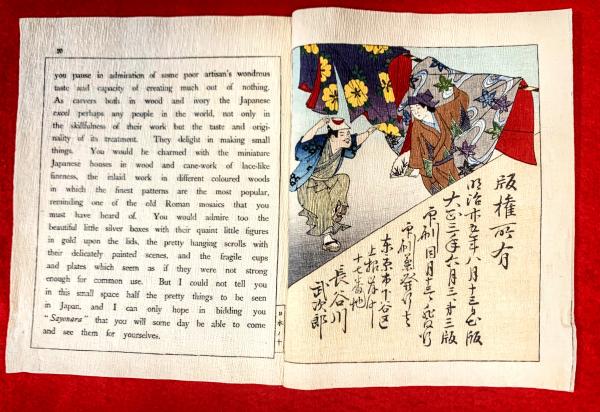 20
you pause in admiration of some poor artisan's wondrous
taste and capacity of creating much out of nothing.
As carvers both in wood and ivory the Japanese
excel perhaps any people in the world, not only in
the skillfulness of their work but the taste and origi-
nality of its treatment. They delight in making small
things. You would be charmed with the miniature
Japanese houses in wood and cane-work of lace-like
fineness, the inlaid work in different coloured woods
in which the finest patterns are the most popular,
reminding one of the old Roman mosaics that you
must have heard of. You would admire too the
beautiful little silver boxes with their quaint little figures
in gold upon the lids, the pretty hanging scrolls with
their delicately painted scenes, and the fragile cups
and plates which seem as if they were not strong
enough for common use. But I could not tell you
in this small space half the pretty things to be seen
in Japan, and I can only hope in bidding you
"Sayonara" that you will some day be able to come
and see them for yourselves.
版権所有
明治廿五年八月十三日出版
大正三年六月三十三版
印刷同月十五日発行
印刷兼発行者
東京市下谷区
上根岸町
十七番地
長谷川
武次郎